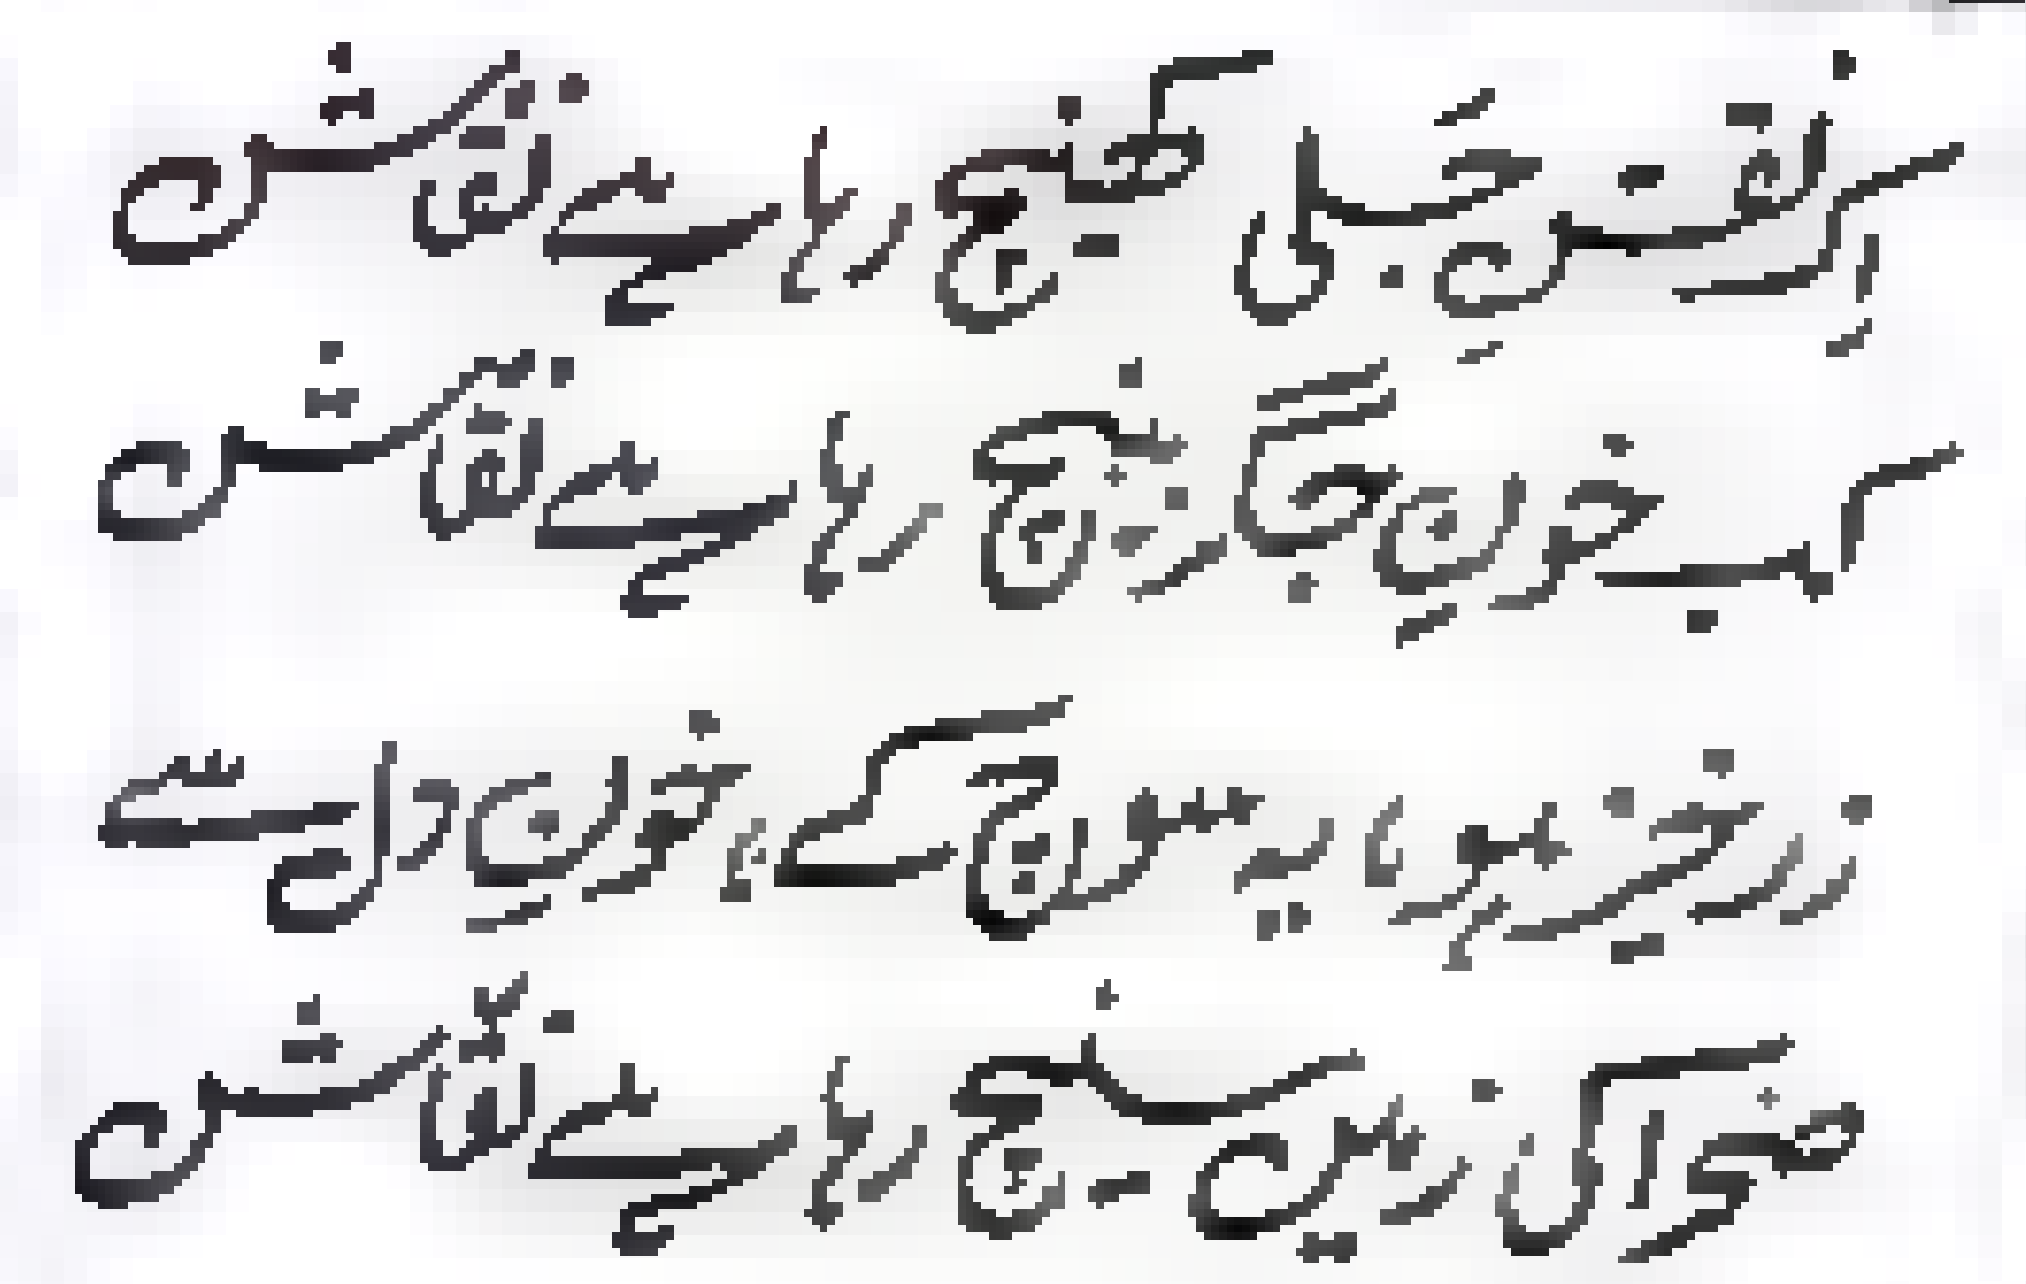 اِک نقشِ جَلی کھینچ رہا ہے نقاش
کب خونِ جگر بیچ رہا ہے نقّاش
زرخیز ہو، یہ سورج کے، خونِ دل سے
صحرا کی زمیں سینچ رہا ہے نقّاش